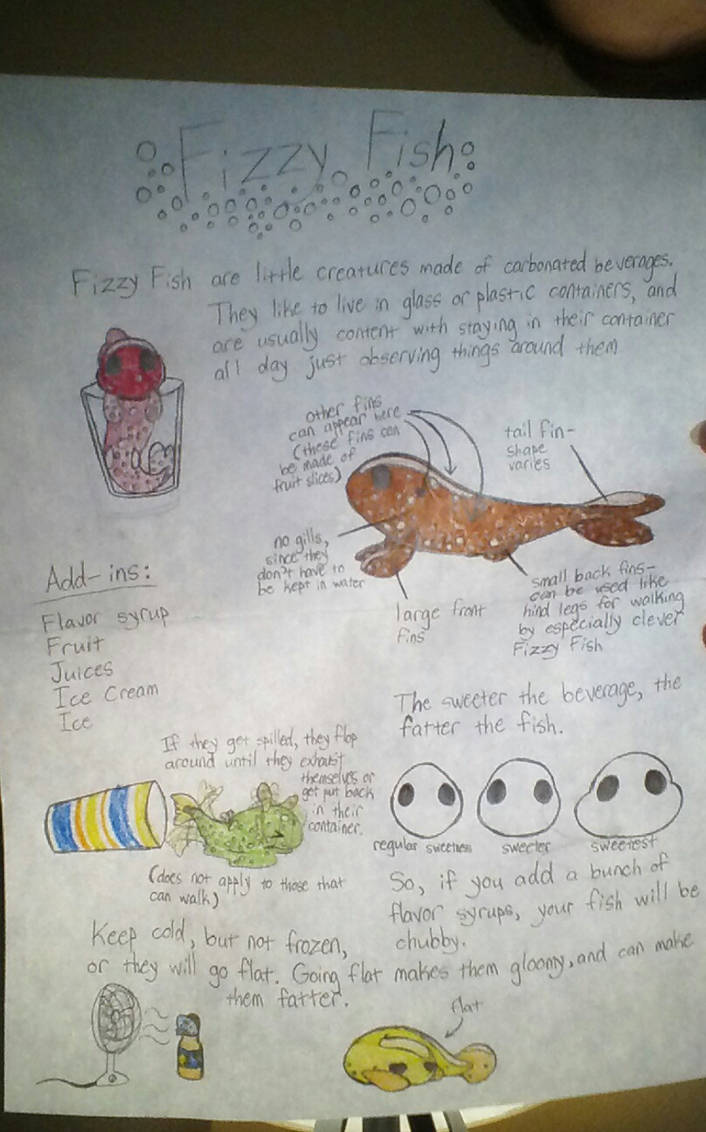 Fizzy Fish
Fizzy Fish are little creatures made of carbonated beverages.
They like to live in glass or plastic containers, and
are usually content with staying in their container
all day just observing things around them
other fins
can appear here
(these fins can
be made of
fruit slices)
tail fin-
shape
varies
no gills,
since they
don't have to
be kept in water
large front
fins
small back fins-
can be used like
hind legs for walking
by especially clever
Fizzy Fish
Add-ins:
Flavor syrup
Fruit
Juices
Ice Cream
Ice
The sweeter the beverage, the
fatter the fish.
regular sweetness
sweeter
sweetest
So, if you add a bunch of
flavor syrups, your fish will be
chubby.
If they get spilled, they flop
around until they exhaust
themselves or
get put back
in their
container.
(does not apply to those that
can walk)
Keep cold, but not frozen,
or they will go flat. Going flat makes them gloomy, and can make
them fatter.
flat